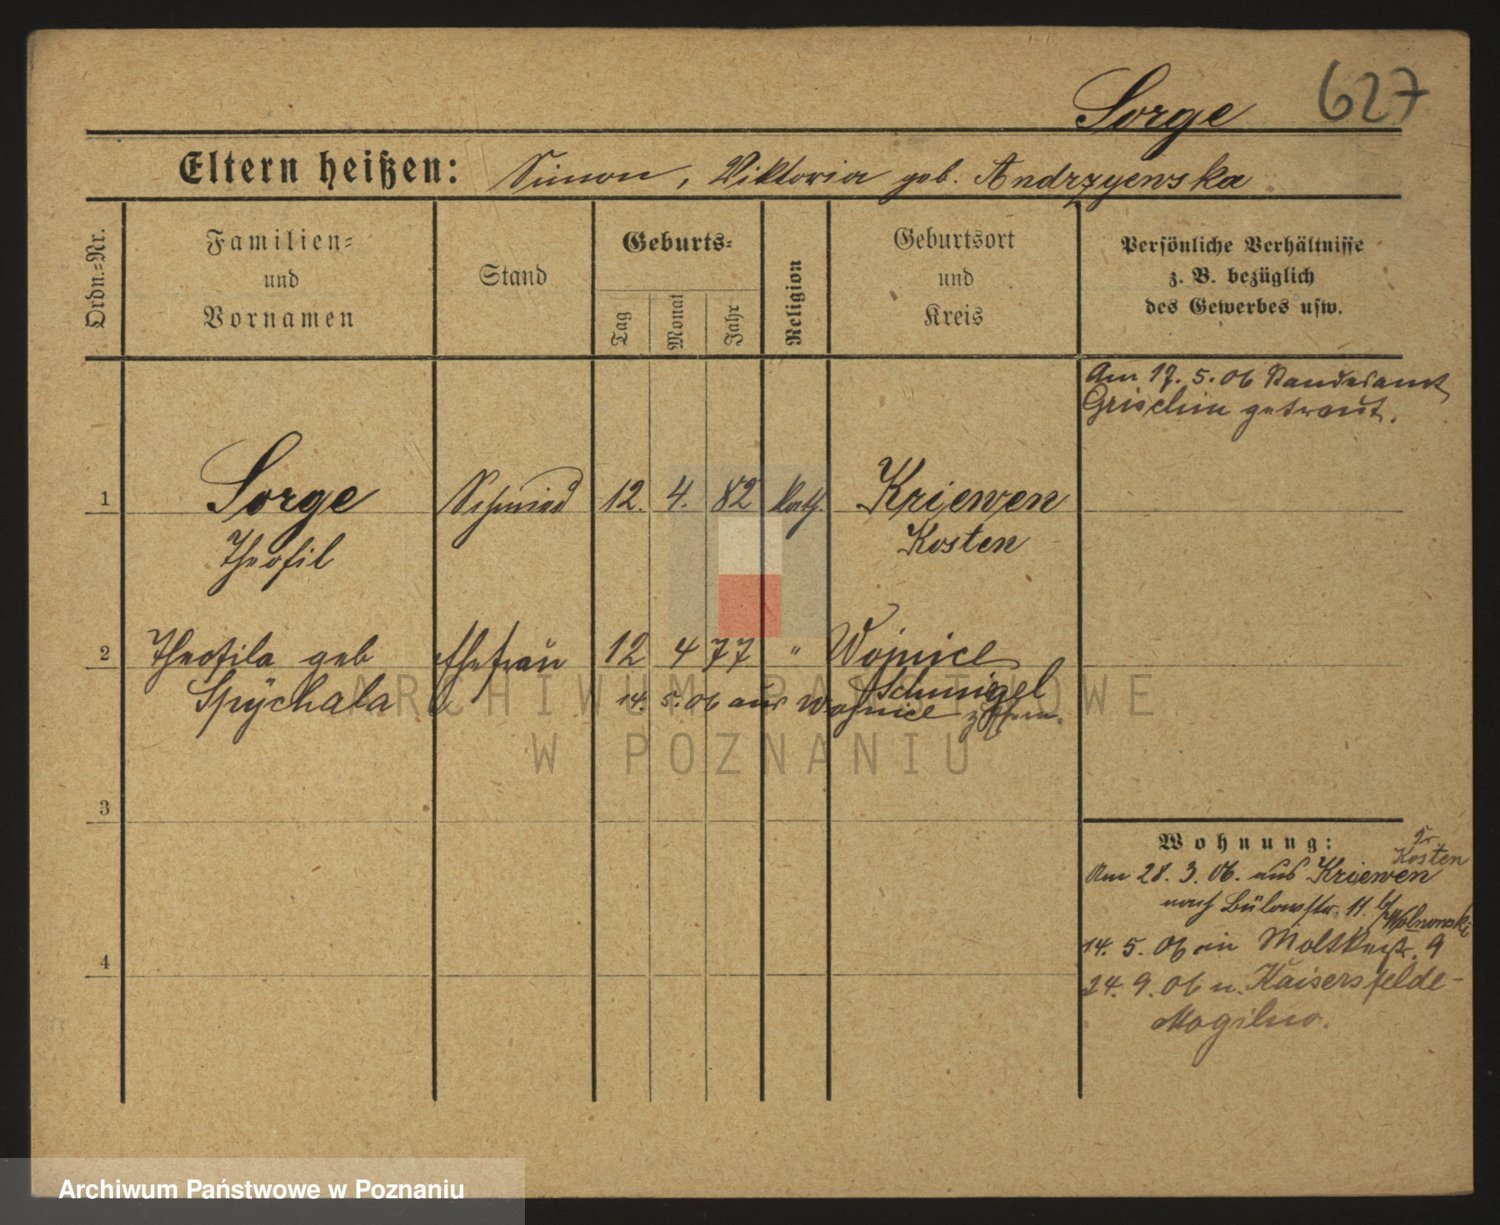 Sorge 627
Eltern heißen: Simon, Viktoria geb. Andrzyewska
Ordn.-Nr.
Familien-
und
Vornamen
Stand
Geburts-
Tag
Monat
Jahr
Religion
Geburtsort
und
Kreis
Persönliche Verhältnisse
z. B. bezüglich
des Gewerbes usw.
Am 17. 5. 06 Standesamt
Grischin getraut.
1 Sorge Schmied 12. 4. 82 kath. Kriewen
Theofil Kosten
2 Theofila geb Ehefrau 12 4 77 " Wojnice
Spychala Schmigel
14. 5. 06 aus Wojnice
3
Wohnung:
Kr. Kosten
Am 28. 3. 06. aus Kriewen
nach Bülowstr. 11. b/ Wolnowski
14. 5. 06 in Moltkestr. 9
4
24. 9. 06 n. Kaisersfelde-
Mogilno.
ARCHIWUM PAŃSTWOWE
W POZNANIU
Archiwum Państwowe w Poznaniu